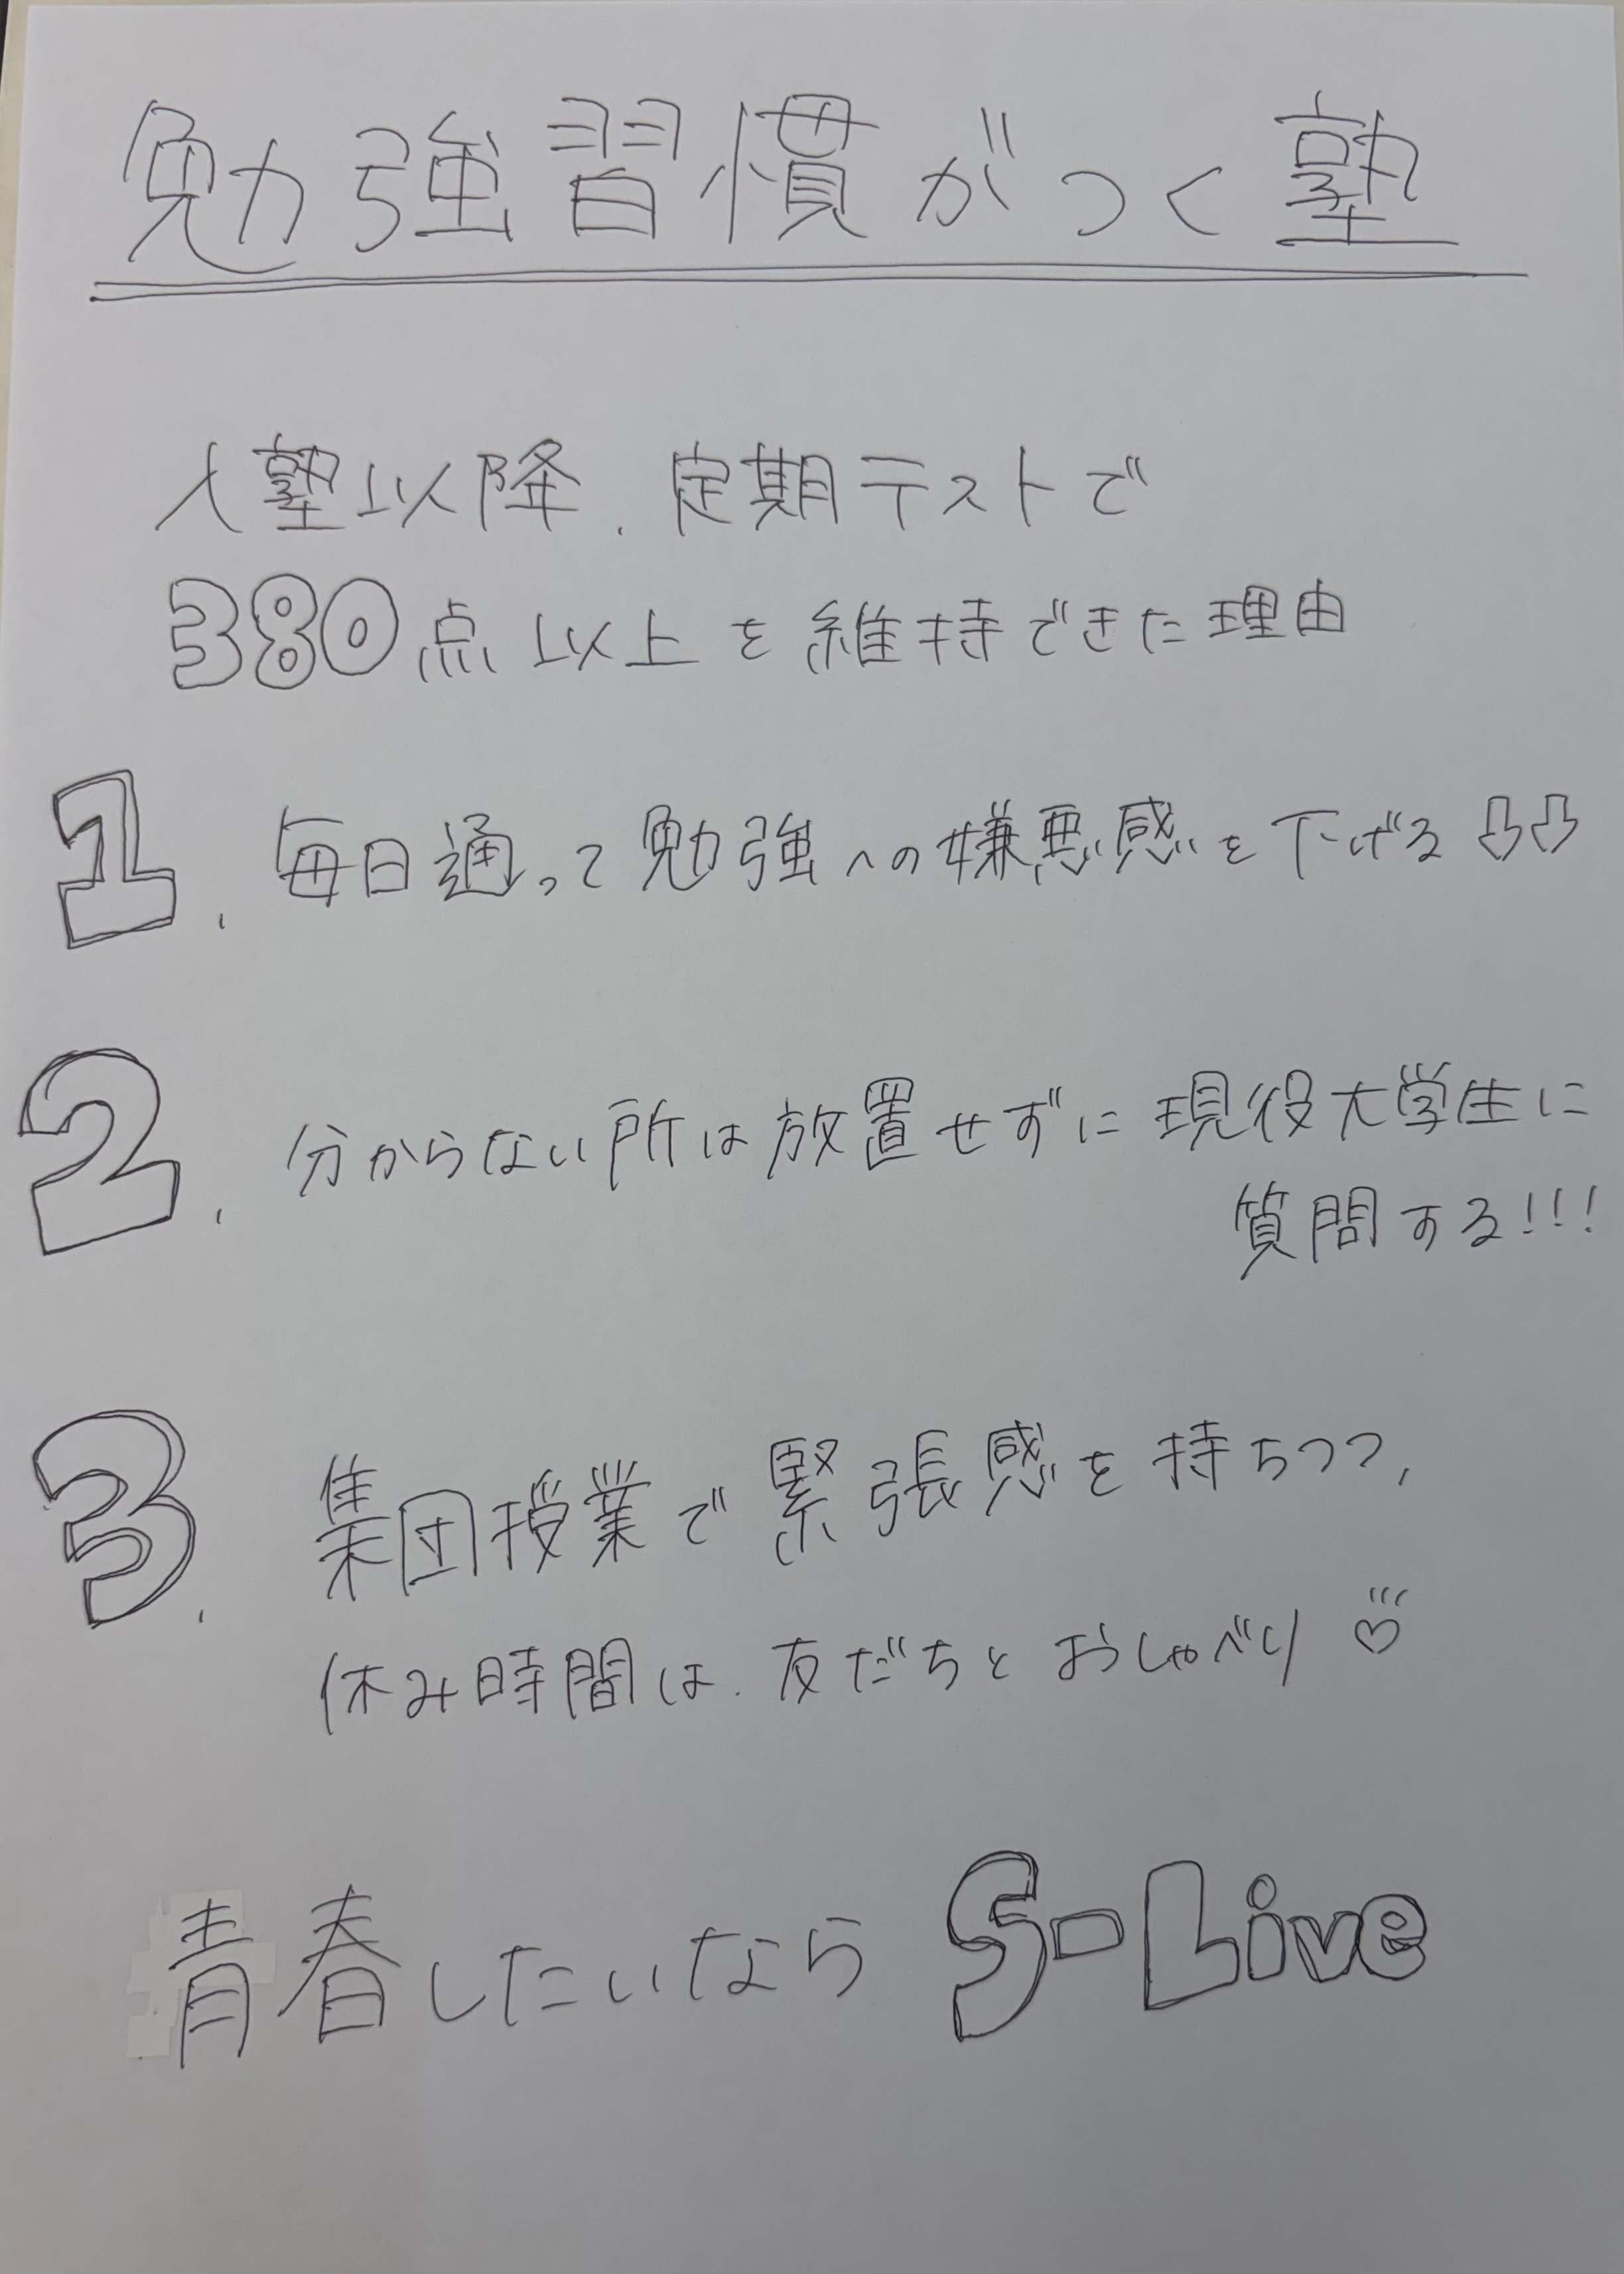 勉強習慣がつく塾
入塾以降、定期テストで
380点以上を維持できた理由
1. 毎日通って勉強への嫌悪感を下げる⇩⇩
2. 分からない所は放置せずに現役大学生に
質問する!!!
3. 集団授業で緊張感を持ちつつ、
休み時間は、友だちとおしゃべり♡
青春したいなら S-Live